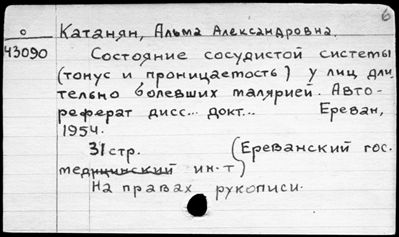 6
о Катанян, Альма Александровна.
43090
Состояние сосудистой системы
(тонус и проницаемость) у лиц дли-
тельно болевших малярией. Авто-
реферат дисс... докт... Ереван,
1954.
31 стр. (Ереванский гос.
медицинский ин-т)
На правах рукописи.